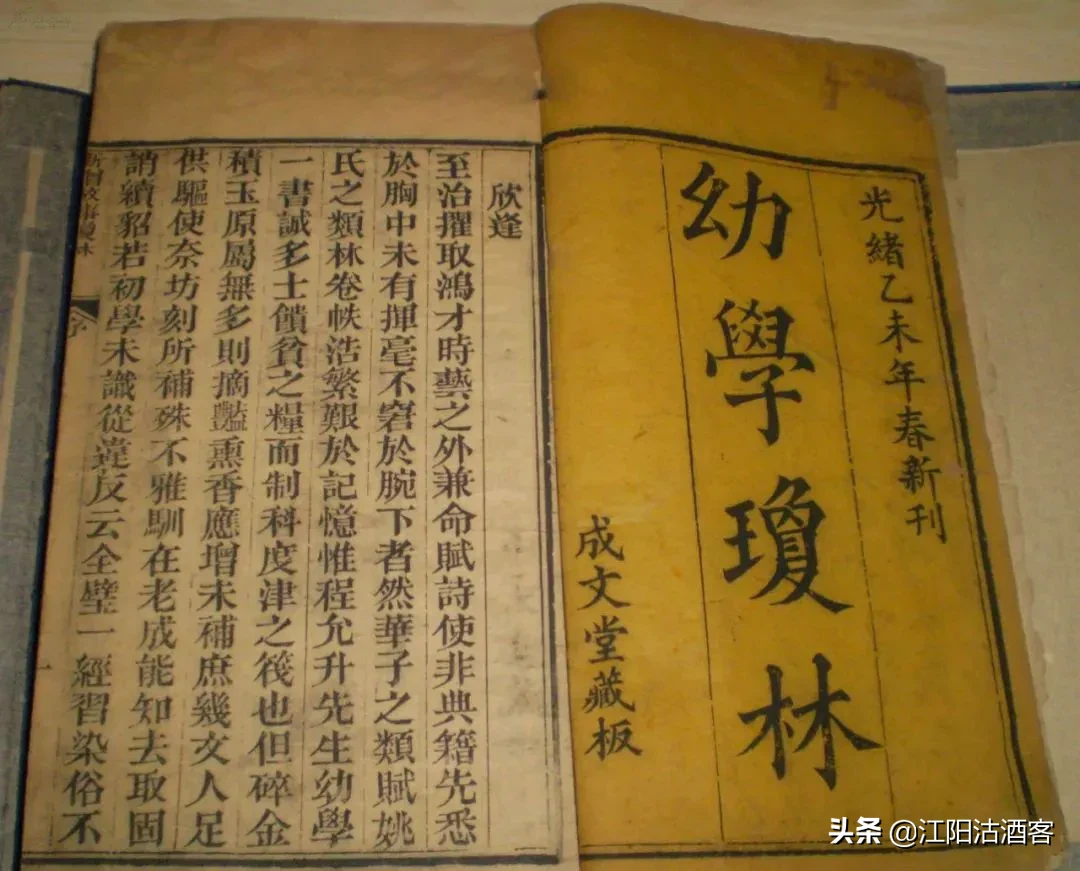 光緒乙未年春新刊
幼學瓊林
成文堂藏板
欣逢
至治擢取鴻才時藝之外兼命賦詩使非典籍先悉
於胸中未有揮毫不窘於腕下者然華子之類賦姚
氏之類林卷帙浩繁艱於記憶惟程允升先生幼學
一書誠多士饋貧之糧而制科度津之筏也但碎金
積玉原屬無多則摘豔熏香應增未補庶幾文人足
供驅使奈坊刻所補殊不雅馴在老成能知去取固
誚續貂若初學未識從違反云全璧一經習染俗不
序
一
头条 @江阳沽酒客